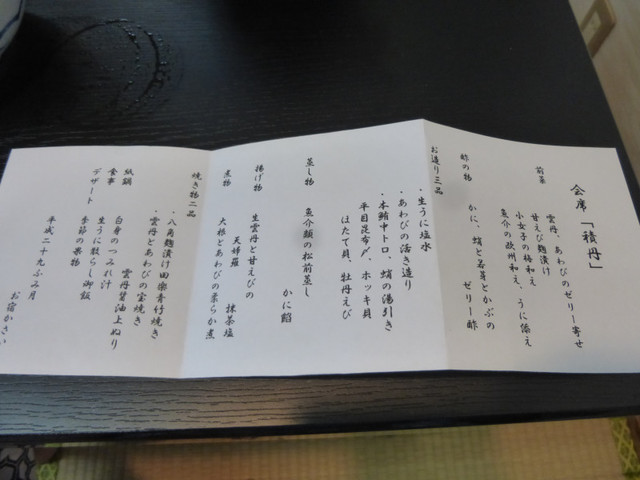 会席「積丹」
前菜
雲丹、あわびのゼリー寄せ
甘えび麹漬け
小女子の梅和え
魚介の欧州和え、うに添え
酢の物
かに、蛸と若芽とかぶの
ゼリー酢
お造り三品
・生うに塩水
・あわびの活き造り
・本鮪中トロ、蛸の湯引き
平目昆布〆、ホッキ貝
ほたて貝、牡丹えび
蒸し物
魚介類の松前蒸し
かに餡
揚げ物
生雲丹と甘えびの
天婦羅 抹茶塩
煮物
大根とあわびの柔らか煮
焼き物二品
・八角麹漬け田楽青竹焼き
・雲丹とあわびの宝焼き
雲丹醤油上ぬり
紙鍋
白身のつみれ汁
食事
生うに散らし御飯
デザート
季節の果物
平成二十九ふみ月
お宿かさい